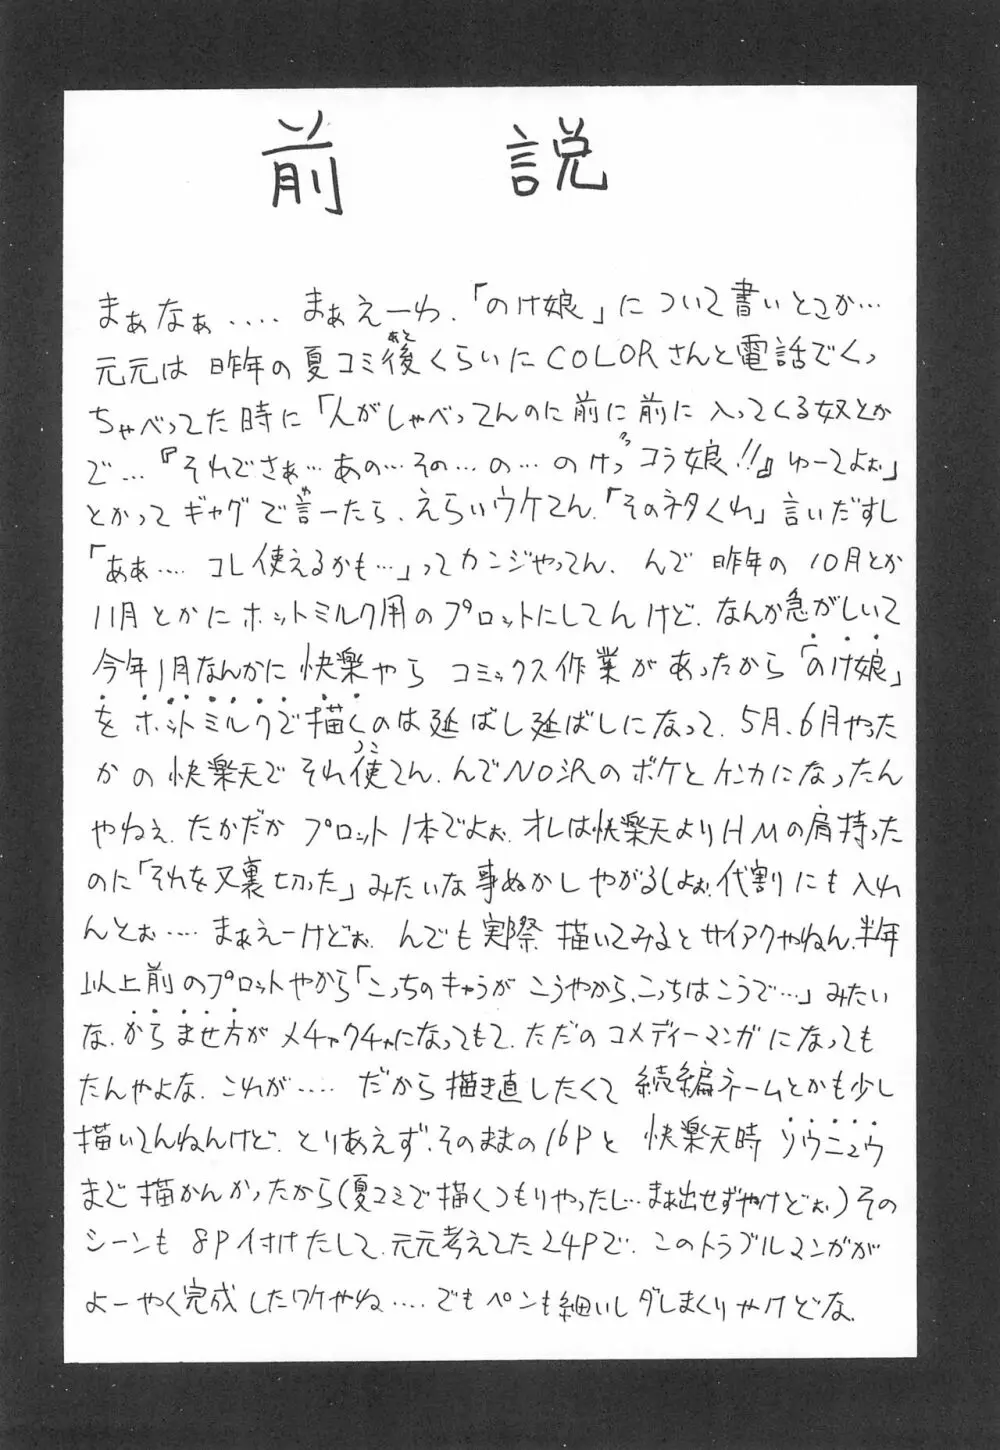 前説
まぁなぁ‥‥ まぁえーわ.「のけ娘」について書いとこか…
元元は昨年の夏コミ後(あと)くらいにCOLORさんと電話でくっ
ちゃべってた時に「人がしゃべってんのに前に前に入ってくる奴とか
で…『それでさぁ…あの…その…の…のけっコラ娘!!』ゆーてよぉ」
とかってギャグで言(や)ーたら、えらいウケてん.「そのネタくれ」言いだすし
「あぁ‥‥ コレ使えるかも…」ってカンジやってん. んで昨年の10月とか
11月とかにホットミルク用のプロットにしてんけど. なんか急がしいて
今年1月なんかに快楽やら コミックス作業があったから「のけ娘」
をホットミルクで描くのは延ばし延ばしになって. 5月、6月やった
かの快楽天でそれ使(つこ)てん. んでNO沢のボケとケンカになったん
やねぇ. たかだかプロット1本でよぉ. オレは快楽天よりHMの肩持った
のに「それを又裏切った」みたいな事ぬかしやがるしよぉ. 代割にも入れ
んとぉ‥‥ まぁえーけどぉ. んでも実際描いてみるとサイアクやねん. 半年
以上前のプロットやから「こっちのキャラが こうやから、こっちはこうで…」みたい
な. からませ方がメチャクチャになってもて. ただのコメディーマンガになっても
たんやよな. これが‥‥ だから描き直したくて続編ネームとかも少し
描いてんねんけど. とりあえず、そのままの16Pと 快楽天時 ソウニュウ
まで描かんかったから(夏コミで描くつもりやったし…まぁ出せずやけどぉ.)その
シーンも8P付けたして. 元元考えてた24Pで. このトラブルマンガが
よーやく完成したワケやね‥‥ でもペンも細いしダしまくりやけどな.